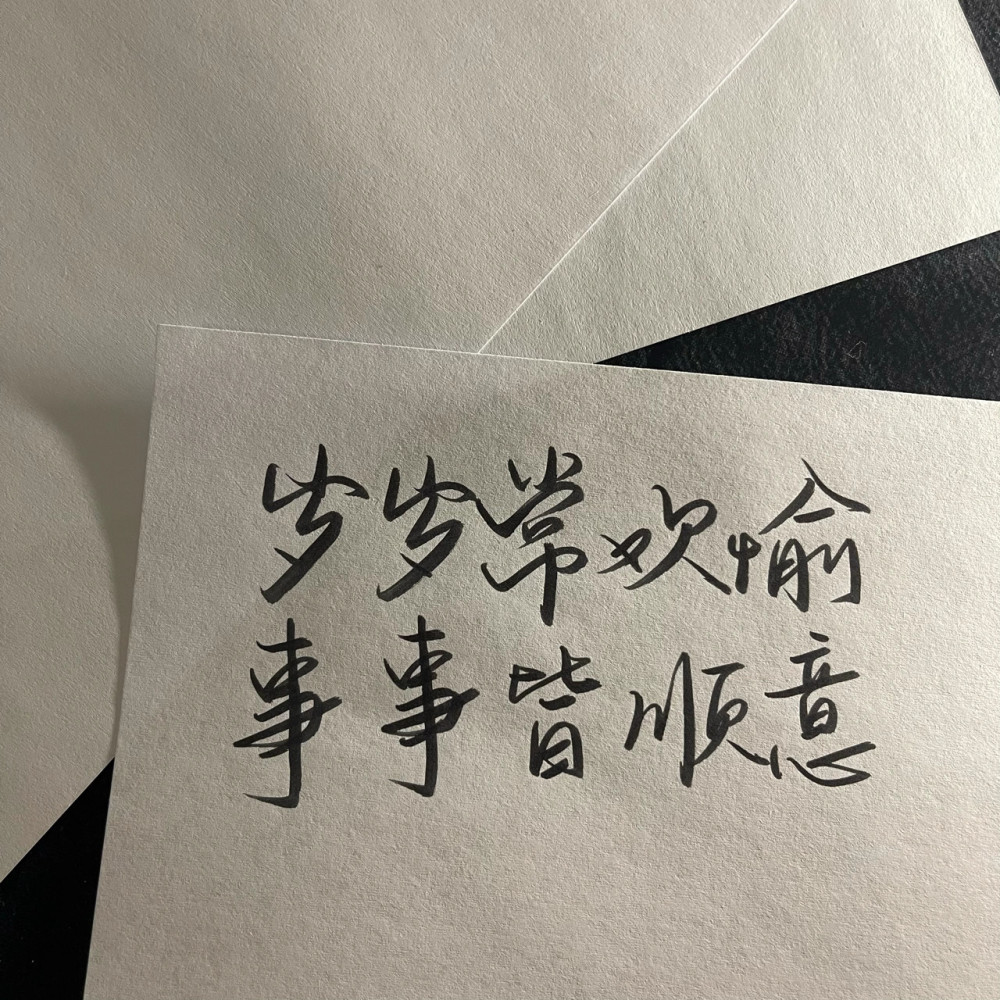 岁岁常欢愉
事事皆顺意